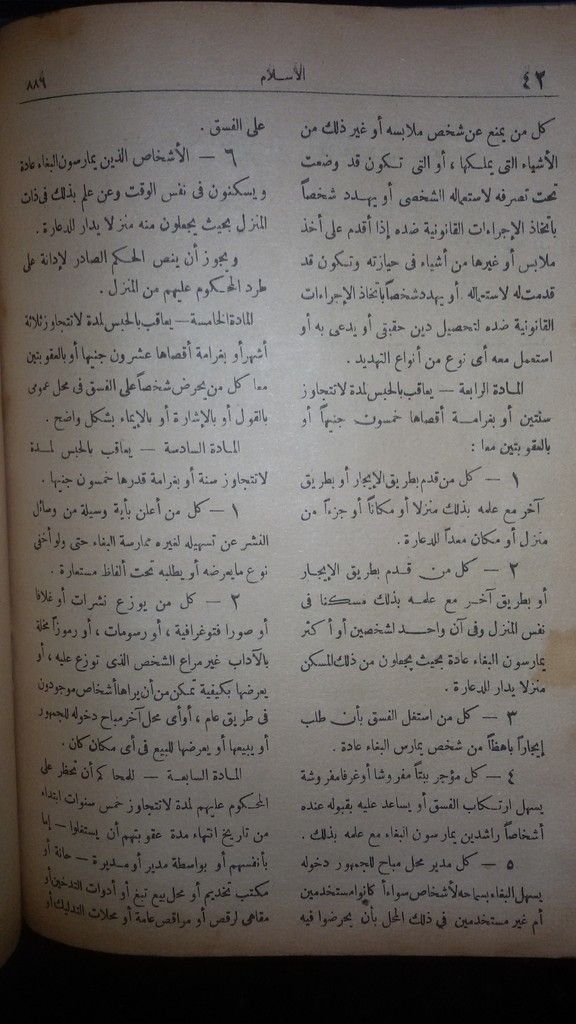 ٤٣
الأسلام
٨٨٩
كل من يمنع عن شخص ملابسه أو غير ذلك من
الأشياء التى يملكها ، أو التى تكون قد وضعت
تحت تصرفه لاستعماله الشخصى أو يهدد شخصاً
بأتخاذ الإجراءات القانونية ضده إذا أقدم على أخذ
ملابس أو غيرها من أشياء فى حيازته وتكون قد
قدمت له لاستعماله أو يهدد شخصاً باتخاذ الإجراءات
القانونية ضده لتحصيل دين حقيقى أو يدعى به أو
استعمل معه أى نوع من أنواع التهديد .
المادة الرابعة — يعاقب بالحبس لمدة لاتتجاوز
سنتين أو بغرامة أقصاها خمسون جنيهاً أو
بالعقوبتين معا :
١ — كل من قدم بطريق الإيجار أو بطريق
آخر مع علمه بذلك منزلا أو مكاناً أو جزءاً من
منزل أو مكان معداً للدعارة .
٢ — كل من قدم بطريق الإيجار
أو بطريق آخر مع علمه بذلك مسكنا فى
نفس المنزل وفى آن واحد لشخصين أو أكثر
يمارسون البغاء عادة بحيث يجعلون من ذلك المسكن
منزلا يدار للدعارة .
٣ — كل من استغل الفسق بأن طلب
إيجاراً باهظاً من شخص يمارس البغاء عادة .
٤ — كل مؤجر بيتاً مفروشا أو غرفا مفروشة
يسهل ارتكاب الفسق أو يساعد عليه بقبوله عنده
أشخاصاً راشدين يمارسون البغاء مع علمه بذلك .
٥ — كل مدير محل مباح للجمهور دخوله
يسهل البغاء بسماحه لأشخاص سواءاً كانوا مستخدمين
أم غير مستخدمين فى ذلك المحل بأن يحرضوا فيه
على الفسق .
٦ — الأشخاص الذين يمارسون البغاء عادة
ويسكنون فى نفس الوقت وعن علم بذلك فى ذات
المنزل بحيث يجعلون منه منزلا يدار للدعارة .
ويجوز أن ينص الحكم الصادر لإدانة على
طرد المحكوم عليهم من المنزل .
المادة الخامسة — يعاقب بالحبس لمدة لاتتجاوز ثلاثة
أشهر أو بغرامة أقصاها عشرون جنيها أو بالعقوبتين
معا كل من يحرض شخصاً على الفسق فى محل عمومى
بالقول أو بالإشارة أو بالإيماء بشكل واضح .
المادة السادسة — يعاقب بالحبس لمدة
لاتتجاوز سنة أو بغرامة قدرها خمسون جنيها .
١ — كل من أعلن بأية وسيلة من وسائل
النشر عن تسهيله لغيره ممارسة البغاء حتى ولو أخفى
نوع مايعرضه أو يطلبه تحت ألفاظ مستعارة .
٢ — كل من يوزع نشرات أو غلافا
أو صورا فتوغرافية ، أو رسومات ، أو رموزاً مخلة
بالآداب غير مراع الشخص الذى توزع عليه ، أو
يعرضها بكيفية تمكن من أن يراها أشخاص موجودون
فى طريق عام ، أو أى محل آخر مباح دخوله للجمهور
أو يبيعها أو يعرضها للبيع فى أى مكان كان .
المادة السابعة — للمحاكم أن تحظر على
المحكوم عليهم لمدة لاتتجاوز خمس سنوات ابتداء
من تاريخ انتهاء مدة عقوبتهم أن يستغلوا — إما
بأنفسهم أو بواسطة مدير أو مديرة — حانة أو
مكتب تخديم أو محل بيع تبغ أو أدوات التدخين أو
مقاهى لرقص أو مراقص عامة أو محلات التدليك أو